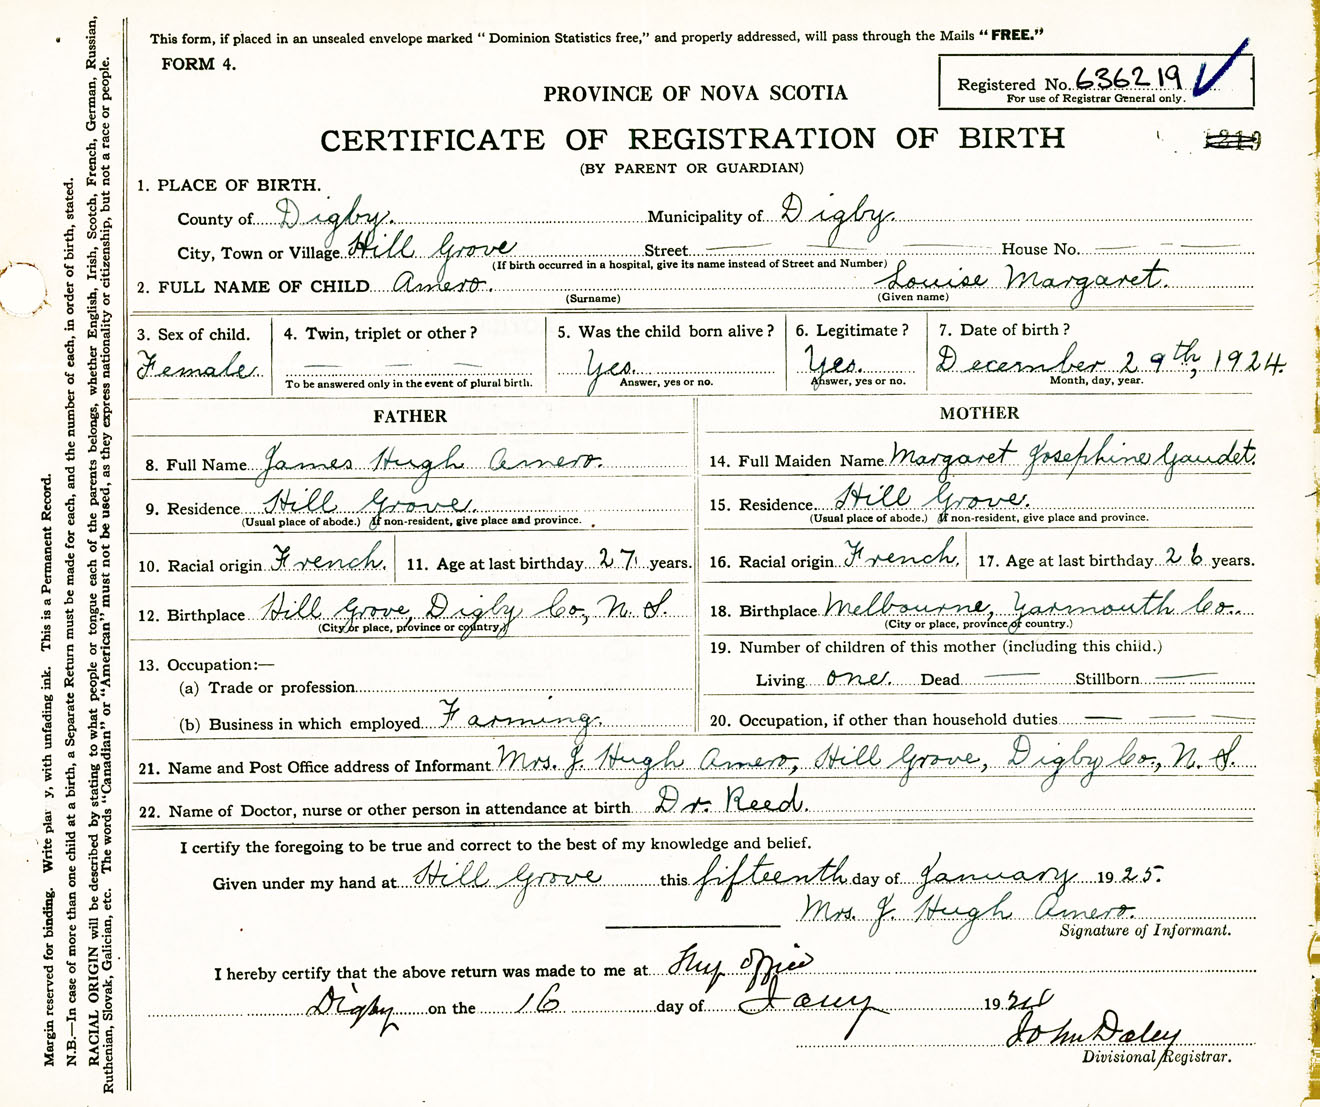 This form, if placed in an unsealed envelope marked " Dominion Statistics free," and properly addressed, will pass through the Mails " FREE."
FORM 4.
Registered No. 636219
For use of Registrar General only.
PROVINCE OF NOVA SCOTIA
CERTIFICATE OF REGISTRATION OF BIRTH
(BY PARENT OR GUARDIAN)
1. PLACE OF BIRTH.
County of Digby. Municipality of Digby.
City, Town or Village Hill Grove Street House No.
(If birth occurred in a hospital, give its name instead of Street and Number)
2. FULL NAME OF CHILD Amero. Louise Margaret.
(Surname) (Given name)
3. Sex of child. 4. Twin, triplet or other? 5. Was the child born alive? 6. Legitimate? 7. Date of birth?
Female. Yes. Yes. December 29th, 1924.
To be answered only in the event of plural birth. Answer, yes or no. Answer, yes or no. Month, day, year.
FATHER MOTHER
8. Full Name James Hugh Amero. 14. Full Maiden Name Margaret Josephine Gaudet.
9. Residence Hill Grove. 15. Residence Hill Grove.
(Usual place of abode.) If non-resident, give place and province. (Usual place of abode.) If non-resident, give place and province.
10. Racial origin French. 11. Age at last birthday 27 years. 16. Racial origin French. 17. Age at last birthday 26 years.
12. Birthplace Hill Grove, Digby Co., N. S. 18. Birthplace Melbourne, Yarmouth Co.
(City or place, province or country.) (City or place, province or country.)
13. Occupation:— 19. Number of children of this mother (including this child.)
(a) Trade or profession Living one. Dead — Stillborn —
(b) Business in which employed Farming. 20. Occupation, if other than household duties — — —
21. Name and Post Office address of Informant Mrs. J. Hugh Amero, Hill Grove, Digby Co., N. S.
22. Name of Doctor, nurse or other person in attendance at birth Dr. Reed.
I certify the foregoing to be true and correct to the best of my knowledge and belief.
Given under my hand at Hill Grove this fifteenth day of January 1925.
Mrs. J. Hugh Amero.
Signature of Informant.
I hereby certify that the above return was made to me at My office
Digby on the 16 day of Jany 19
John Daley
Divisional Registrar.
Margin reserved for binding. Write plai y, with unfading ink. This is a Permanent Record.
N.B.—In case of more than one child at a birth, a Separate Return must be made for each, and the number of each, in order of birth, stated.
RACIAL ORIGIN will be described by stating to what people or tongue each of the parents belongs, whether English, Irish, Scotch, French, German, Russian,
Ruthenian, Slovak, Galician, etc. The words "Canadian" or "American" must not be used, as they express nationality or citizenship, but not a race or people.